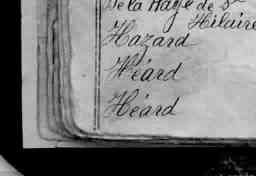 De la Haye de St
Hilaire
Hazard
Héard
Héard